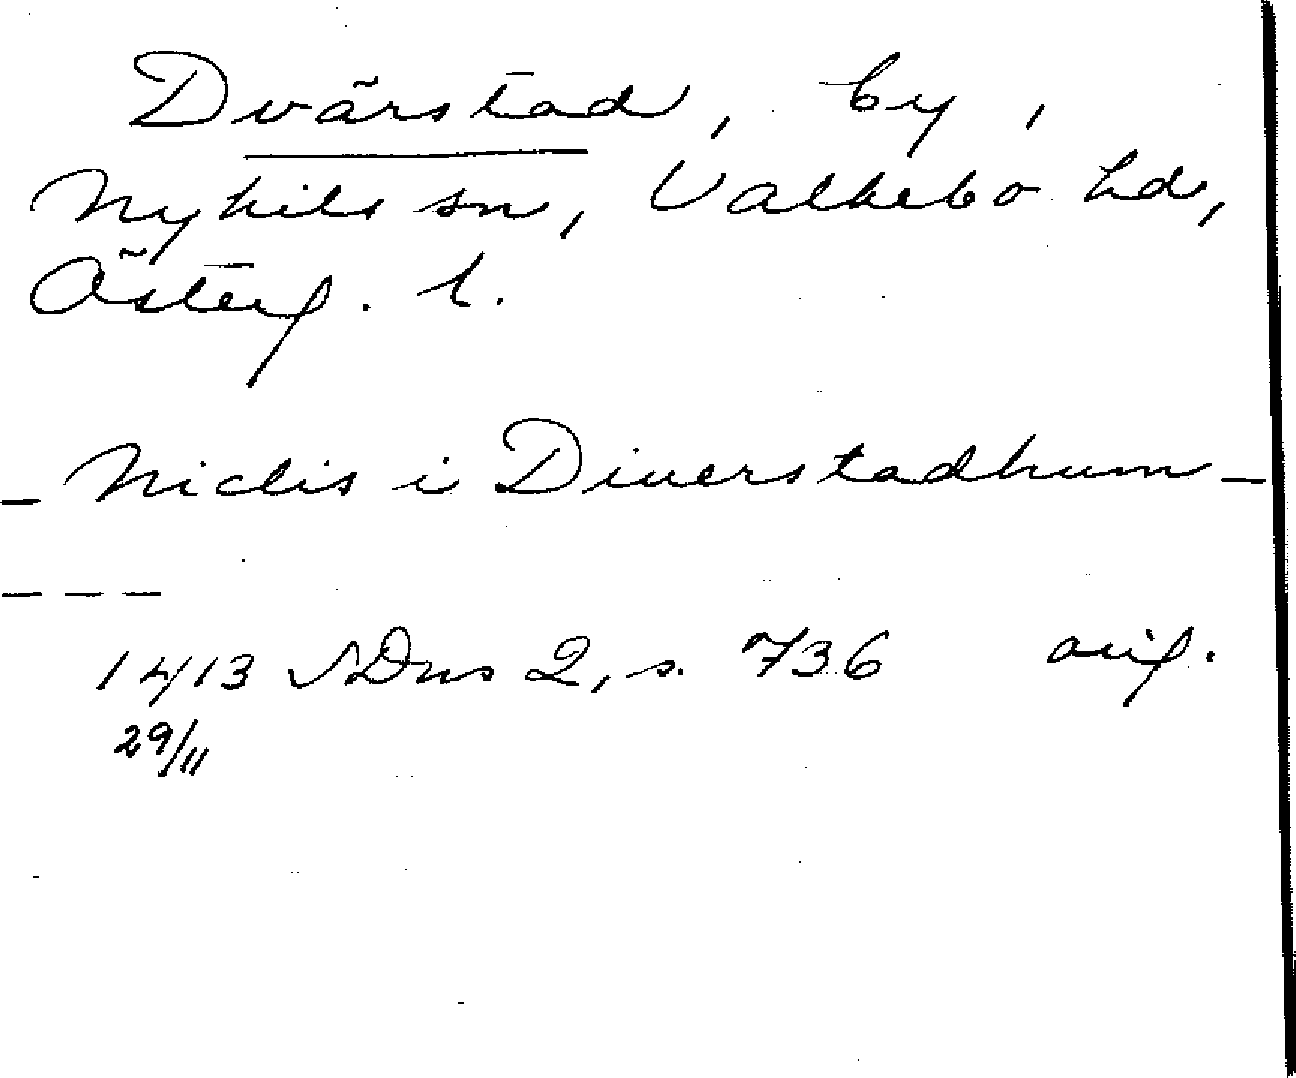 Dvärstad, by,
Nykils sn, Valkebo hd,
Österg. l.
- Niclis i Diuerstadhum -
- - -
1413 SDns 2, s. 736 orig.
29/11